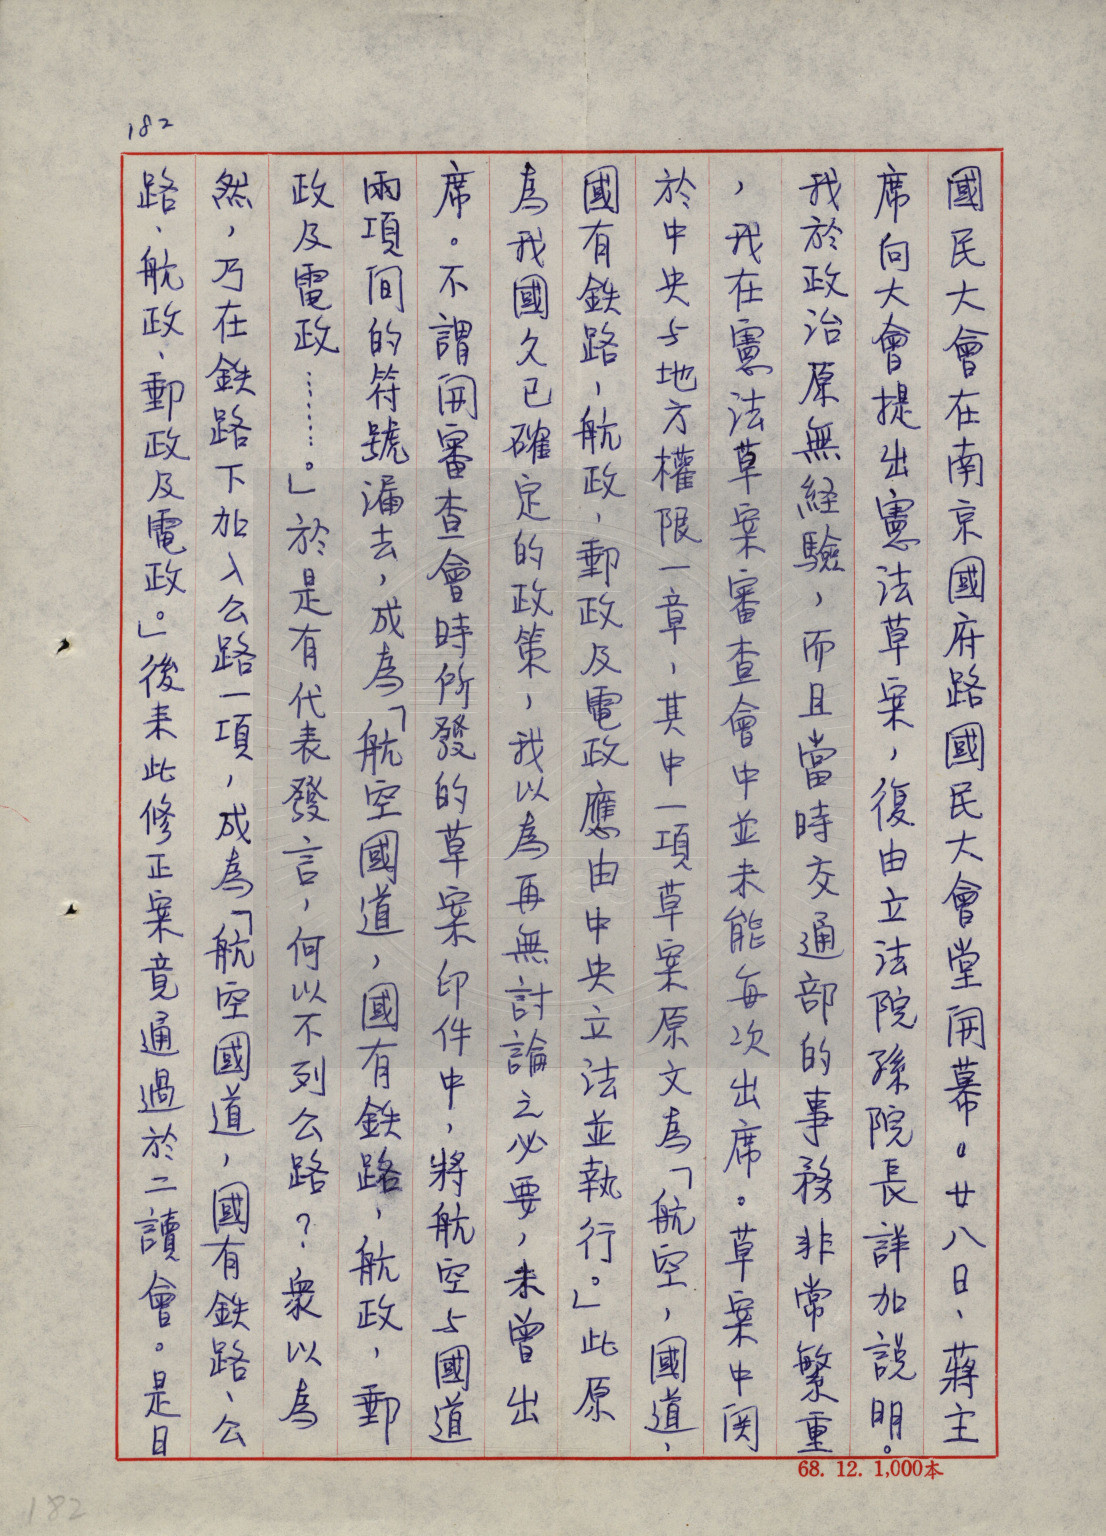 182
國民大會在南京國府路國民大會堂開幕。廿八日、蔣主
席向大會提出憲法草案，復由立法院孫院長詳加說明。
我於政治原無経驗，而且當時交通部的事務非常繁重
，我在憲法草案審查會中並未能每次出席。草案中関
於中央与地方權限一章，其中一項草案原文為「航空，國道、
國有鉄路，航政，郵政及電政應由中央立法並執行。」此原
為我國久已確定的政策，我以為再無討論之必要，未曾出
席。不謂開審查會時所發的草案印件中，將航空与國道
兩項间的符號漏去，成為「航空國道，國有鉄路，航政，郵
政及電政……。」於是有代表發言，何以不列公路？衆以為
然，乃在鉄路下加入公路一項，成為「航空國道，國有鉄路、公
路、航政、郵政及電政。」後来此修正案竟通過於二讀會。是日
68. 12. 1,000本
182